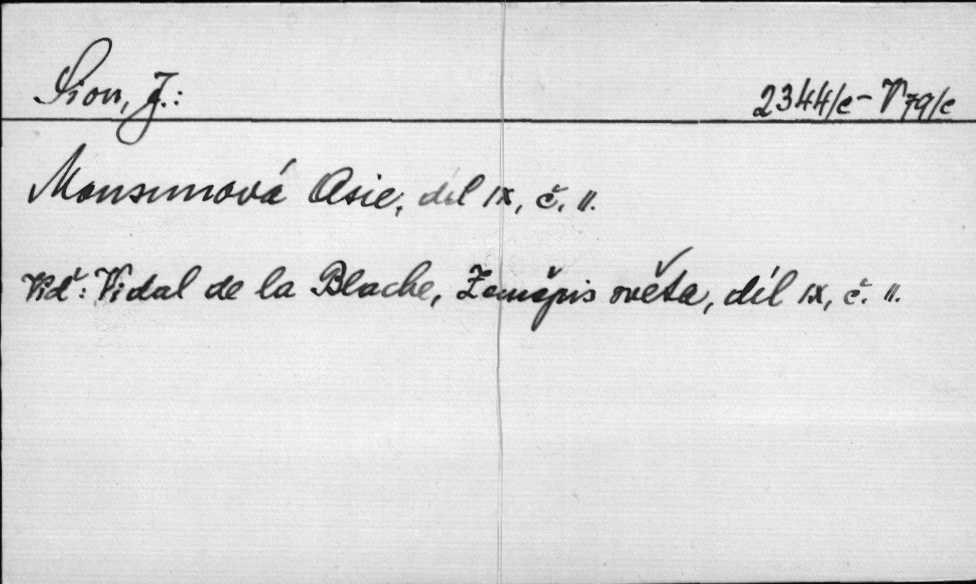 Sion, J.: 2344/c - V79/c
Monsunová Asie, díl IX, č. II.
Viď: Vidal de la Blache, Zeměpis světa, díl IX, č. II.